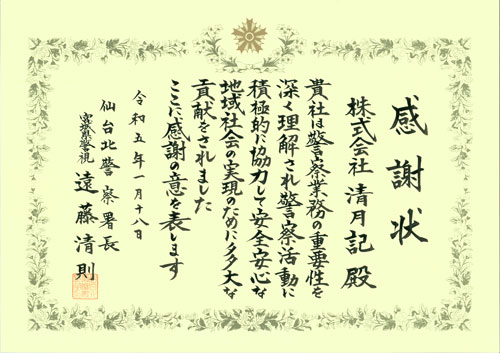 感謝状
株式会社 清月記 殿
貴社は警察業務の重要性を
深く理解され警察活動に
積極的に協力して安全安心な
地域社会の実現のために多大な
貢献をされました
ここに感謝の意を表します
令和五年一月十八日
仙台北警察署長
宮城県警視 遠藤清則